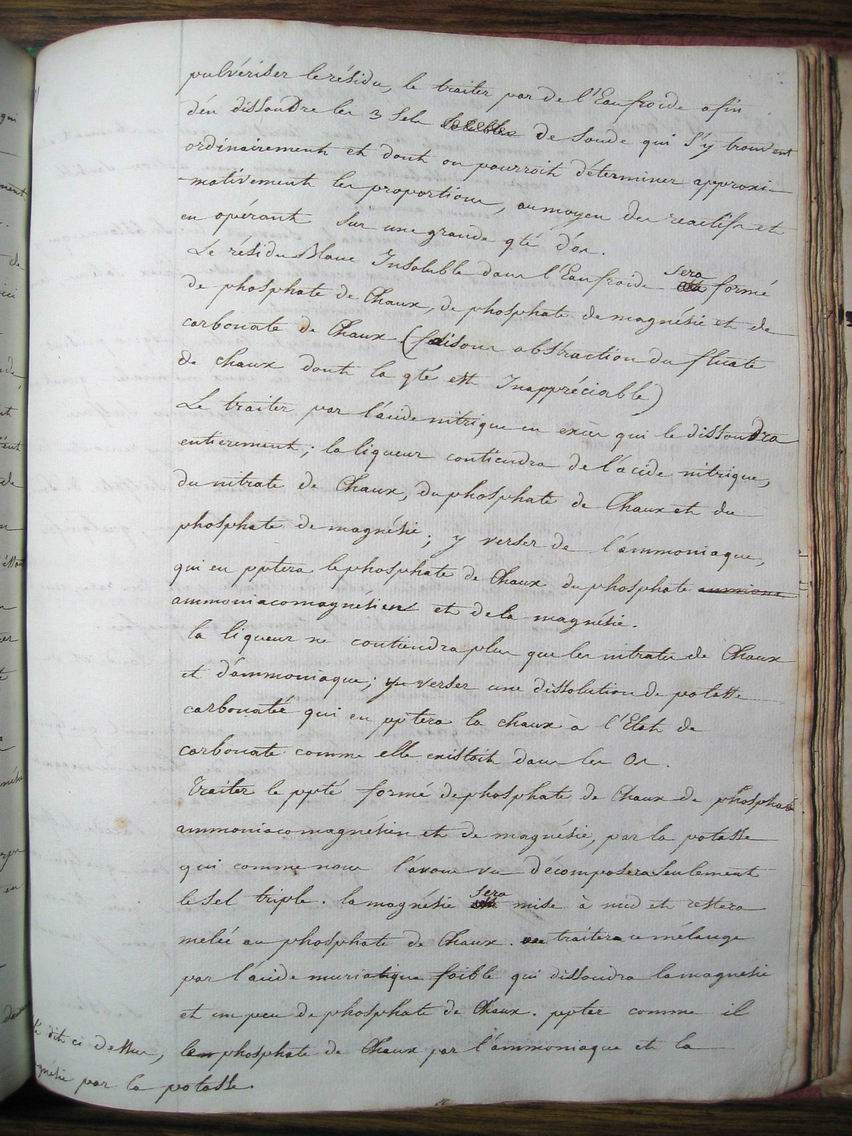 pulvériser le résidu, le traiter par de l'Eau froide afin
d'en dissoudre les 3 Sels solubles de Soude qui S'y trouvent
ordinairement et dont on pourroit déterminer approxi-
-mativement les proportions, au moyen des reactifs et
en opérant Sur une grande qté d'os.
Le résidu Blanc Insoluble dans l'Eau froide sera formé
de phosphate de Chaux, de phosphate de magnésie et de
carbonate de Chaux (faisons abstraction du fluate
de chaux dont la qté est Inappréciable)
Le traiter par l'acide nitrique en excès qui le dissoudra
entierement; la liqueur contiendra de l'acide nitrique,
du nitrate de Chaux, du phosphate de Chaux et du
phosphate de magnésie; y verser de l'ammoniaque,
qui en pptera le phosphate de Chaux du phosphate
ammoniacomagnésien et de la magnésie.
la liqueur ne contiendra plus que les nitrates de Chaux
et d'ammoniaque; y verser une dissolution de potasse
carbonatée qui en pptera la chaux à l'Etat de
carbonate comme elle existoit dans les Os.
Traiter le ppté formé de phosphate de Chaux de phosphate
ammoniacomagnésien et de magnésie, par la potasse
qui comme nous l'avons vu décomposera Seulement
le Sel triple. la magnésie sera mise à nud et restera
melée au phosphate de Chaux. traiter ce mélange
par l'acide muriatique foible qui dissoudra la magnésie
et un peu de phosphate de Chaux. ppter comme il
dit ci dessus, le phosphate de Chaux par l'ammoniaque et la
magnésie par la potasse.